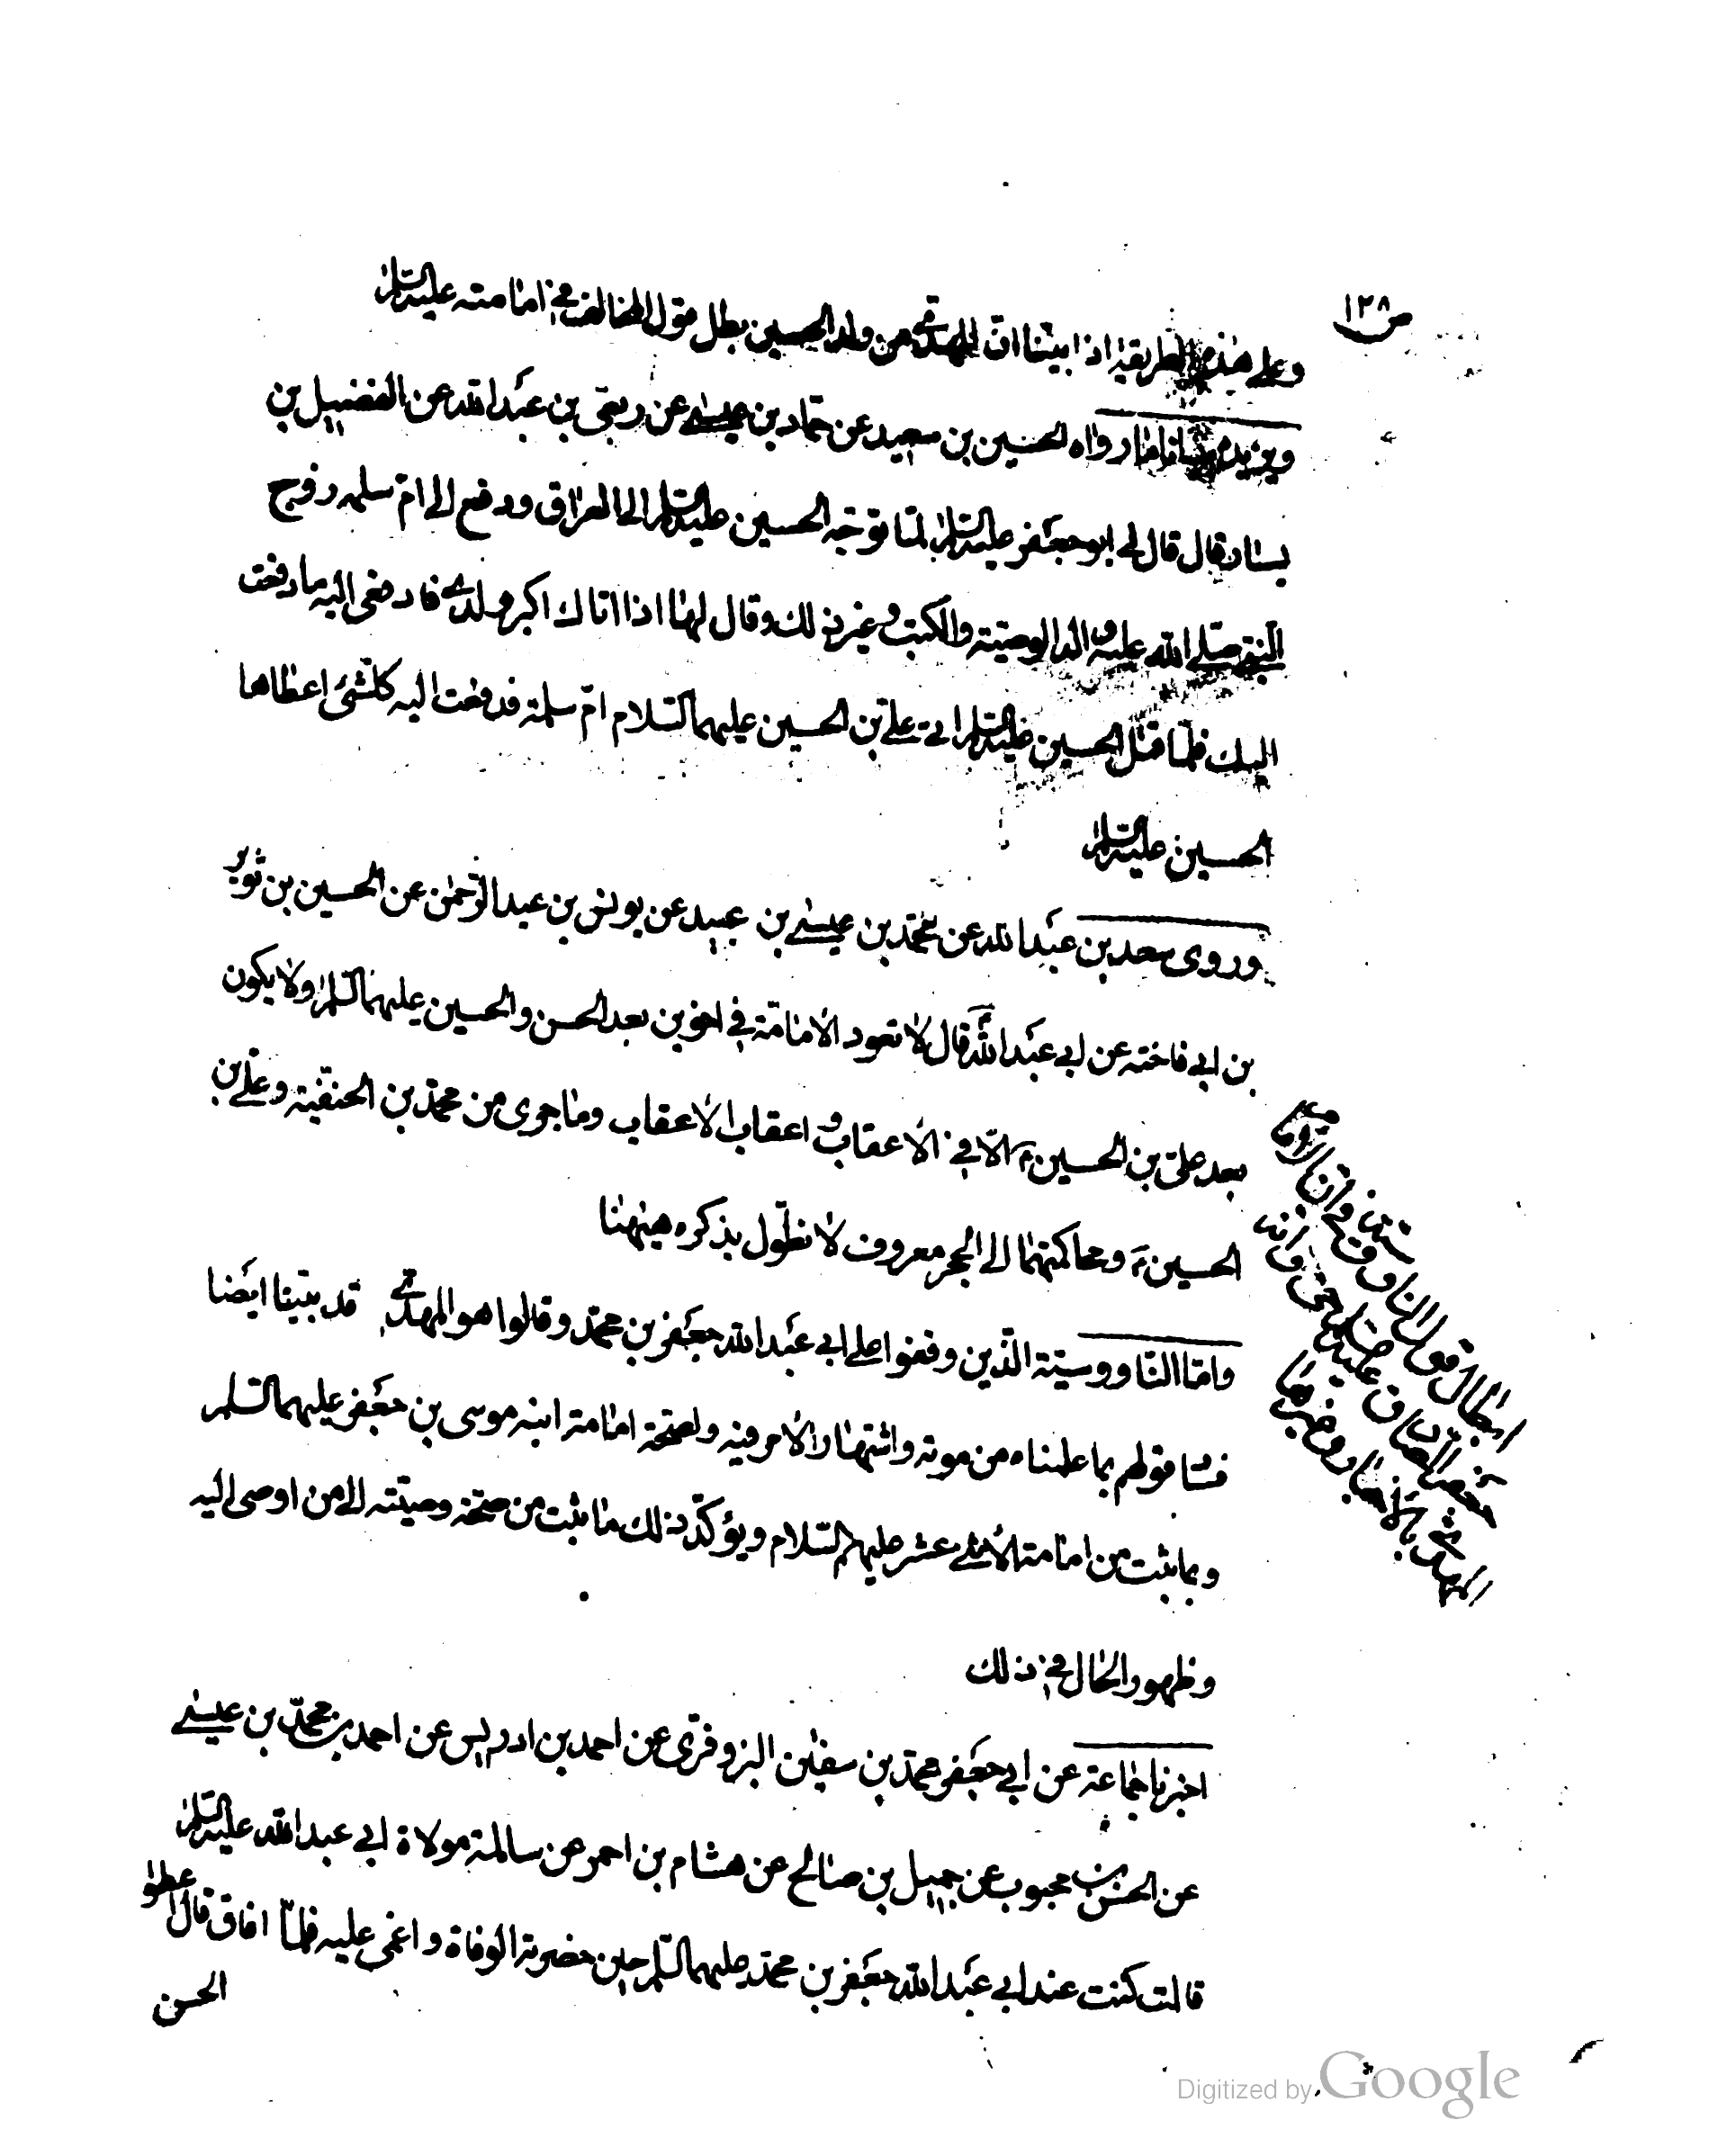 ص١٢٨
وعلى هذه الطريقة اذا بيّنا انّ المهدي من ولد الحسين بطل قول المخالف في امامته عليه السّلم
ويزيده بيانا ما رواه الحسين بن سعيد عن حمّاد بن عيسى عن ربعى بن عبد الله عن الفضيل بن
يسار قال قال لى ابو جعفر عليه السّلم لمّا توجّه الحسين عليه السّلم الى العراق ودفع الى امّ سلمه زوج
النبى صلى الله عليه واله الوصيّة والكتب وغير ذلك وقال لها اذا اتاك اكبر ولدى فادفعى اليه ما دفعت
اليك فلمّا قتل الحسين عليه السّلم اتى على بن الحسين عليهما السّلام امّ سلمة فدفعت اليه كلّشئ اعطاها
الحسين عليه السّلم
وروى سعد بن عبد الله عن محمّد بن عيسى بن عبيد عن يونس بن عبد الرّحمن عن الحسين بن ثوير
بن ابى فاخته عن ابى عبد الله قال لا تعود الامامة فى اخوين بعد الحسن والحسين عليهما السّلم ولا يكون
بعد على بن الحسين ع الّا فى الاعقاب و اعقاب الاعقاب وما جرى من محمّد بن الحنفيّة وعلى بن
الحسين ع ومحاكمتهما الى الحجر معروف لا نطول بذكره هيهنا
وامّا النّاووسيّة الّذين وقفوا على ابى عبد الله جعفر بن محمّد وقالوا هو المهدى قد بيّنا ايضا
فساد قولهم بما علمناه من موته واشتهار الامر فيه ولصحّة امامة ابنه موسى بن جعفر عليهما السّلم
وبما ثبت من امامة الاثنى عشر عليهم السّلام ويؤكّد ذلك ما ثبت من صحّة وصيّته الى من اوصى اليه
وظهور الحال فى ذلك
اخبرنا جماعة عن ابى جعفر محمّد بن سفين البزوفرى عن احمد بن ادريس عن احمد بن محمّد بن عيسى
عن الحسن بن محبوب عن جميل بن صالح عن هشام بن احمر عن سالمة مولاة ابى عبد الله عليه السّلم
قالت كنت عند ابى عبد الله جعفر بن محمّد عليهما السّلم حين حضرته الوفاة واغمى عليه فلمّا افاق قال اعطوا
الحسن
ابطال قول الناووسية
Digitized by Google